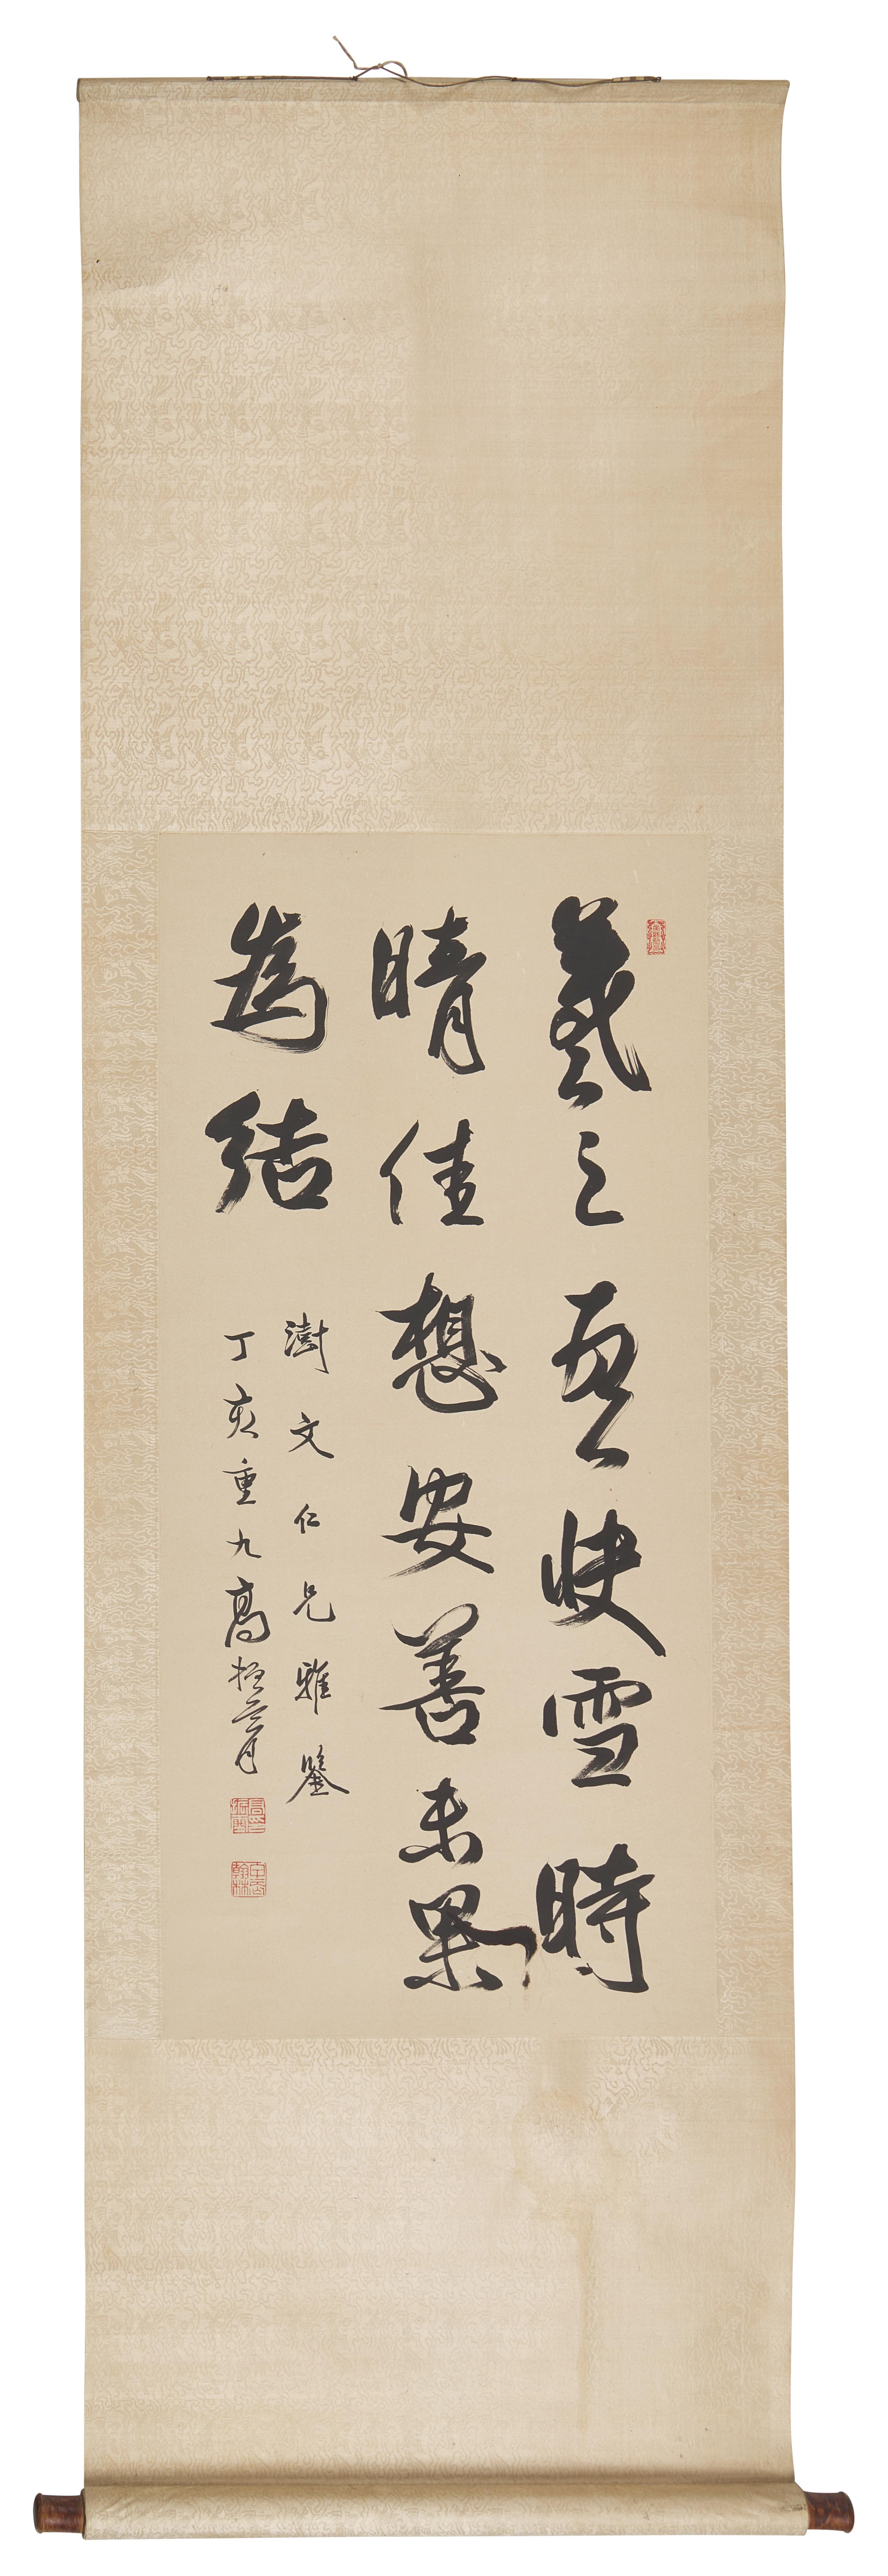 羲之快雪時
晴佳想安善未果
為結
澍文仁兄雅鑒
丁亥重九高振霄